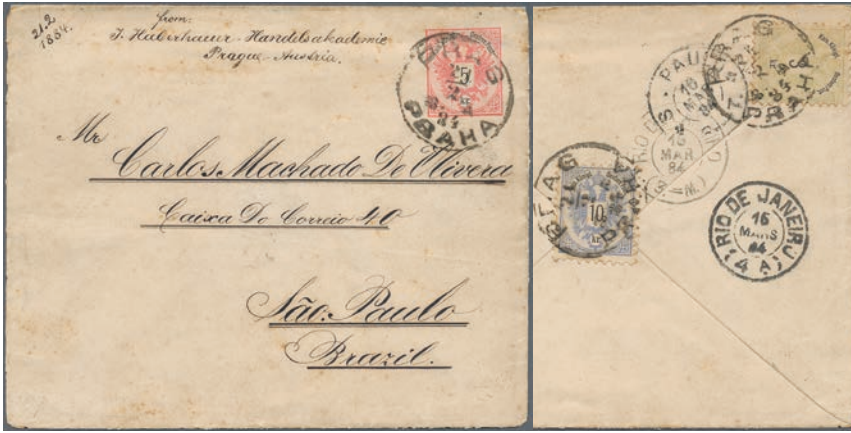 21.2
1884.
from:
J. Haberhauer - Handelsakademie
Prague - Austria.
PRAG
PRAHA
5
Mr
Carlos Machado De Olivera
Caixa Do Correio 40
São Paulo
Brazil.
PRAG
PRAHA
PAUL
16
MAR
84
PRAG
PRAHA
10
RIO DE JANEIRO
16
MARS
84
(4 A)